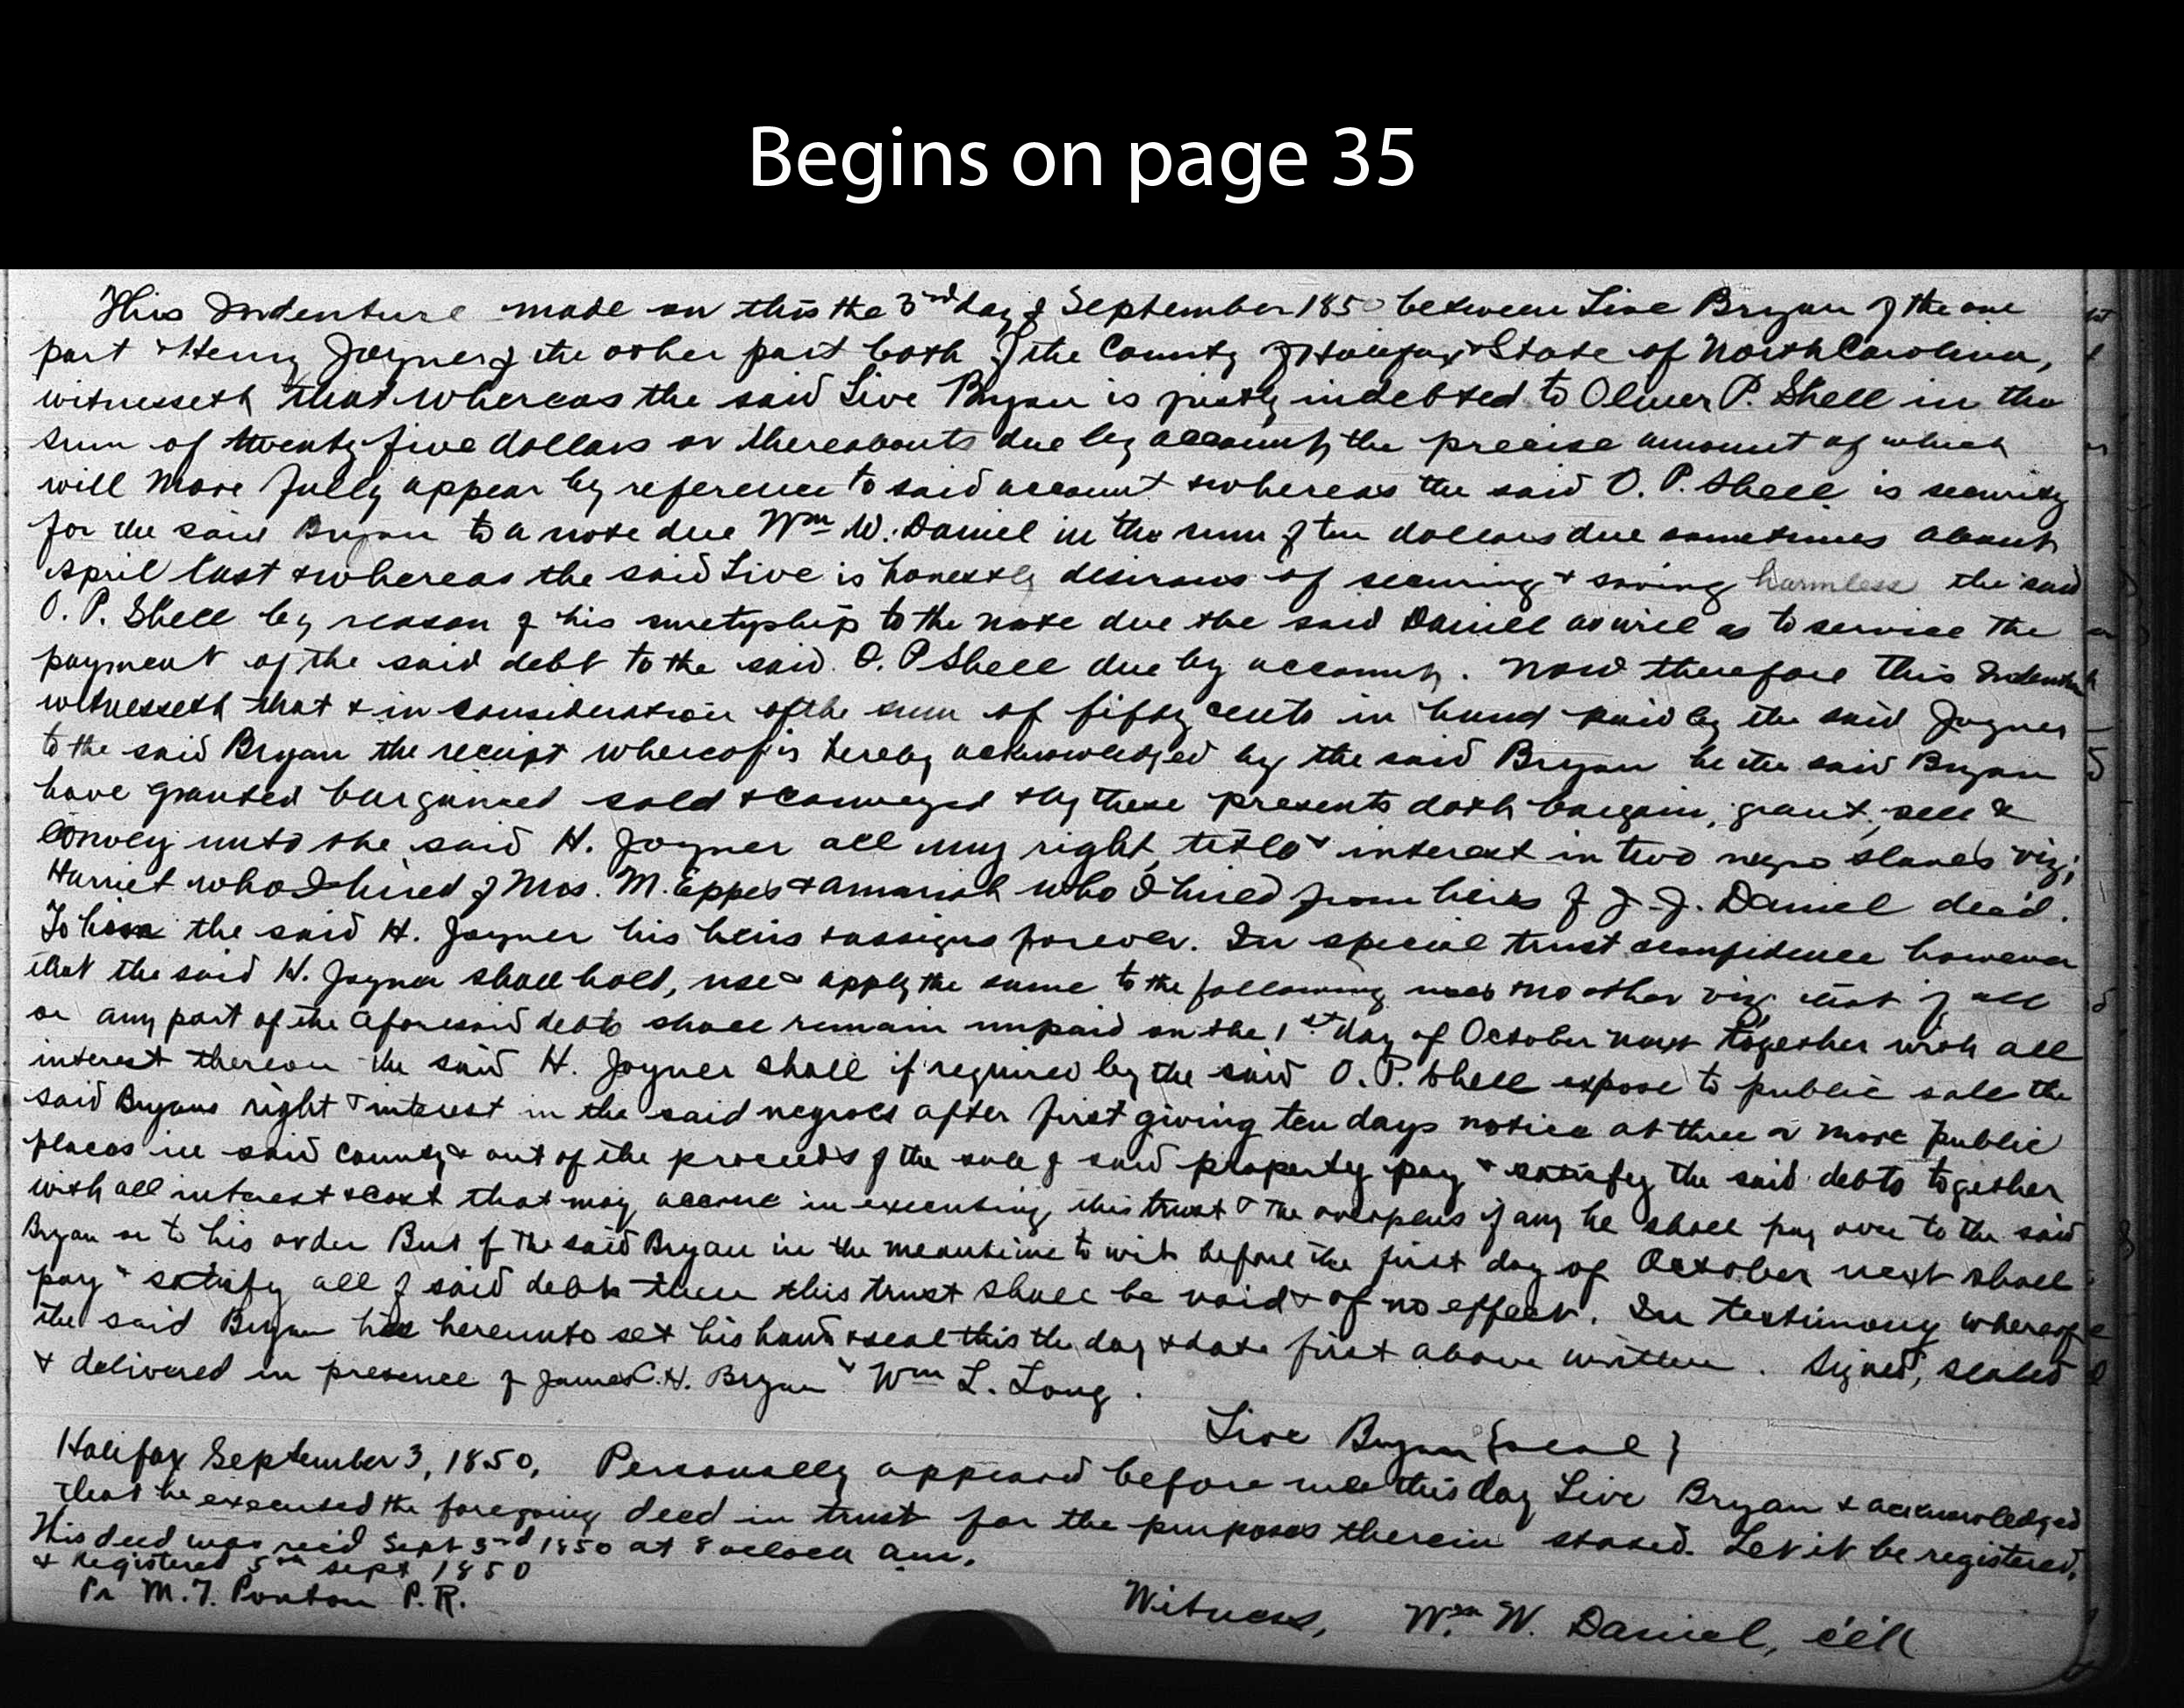 Begins on page 35
This Indenture made on this the 3rd day of September 1850 between Live Bryan of the one
part & Henry Joyner of the other part both of the County of Halifax & State of North Carolina,
witnesseth that whereas the said Live Bryan is justly indebted to Oliver P. Shell in the
sum of twenty five dollars or thereabouts due by account, the precise amount of which
will more fully appear by reference to said account & whereas the said O. P. Shell is security
for the said Bryan to a note due Wm W. Daniel in the sum of ten dollars due sometimes about
April last & whereas the said Live is honestly desirous of securing & saving harmless the said
O. P. Shell by reason of his suretyship to the note due the said Daniel as well as to service the
payment of the said debt to the said O. P Shell due by account. Now therefore this Indenture
witnesseth that & in consideration of the sum of fifty cents in hand paid by the said Joyner
to the said Bryan the receipt whereof is hereby acknowledged by the said Bryan he the said Bryan
have granted bargained sold & conveyed & by these presents doth bargain, grant, sell &
convey unto the said H. Joyner all my right, title & interest in two negro slaves viz;
Harriet who I hired of Mrs. M. Eppes & Amariah who I hired from heirs of J. J. Daniel dec'd.
To him the said H. Joyner his heirs & assigns forever. In special trust & confidence however
that the said H. Joyner shall hold, use & apply the same to the following uses & no other viz, that if all
or any part of the aforesaid debts shall remain unpaid on the 1st day of October next together with all
interest thereon the said H. Joyner shall if required by the said O. P. Shell expose to public sale the
said Bryans right & interest in the said negroes after first giving ten days notice at three or more public
places in said county & out of the proceeds of the sale of said property pay & satisfy the said debts together
with all interest & cost that may accrue in executing this trust & the overplus if any he shall pay over to the said
Bryan or to his order But if the said Bryan in the meantime to wit before the first day of October next shall
pay & satisfy all of said debts then this trust shall be void & of no effect. In testimony whereof
the said Bryan has hereunto set his hand & seal this the day & date first above written. Signed, sealed
& delivered in presence of James C. H. Bryan & Wm L. Long.
Live Bryan {seal}
Halifax September 3, 1850. Personally appeared before me this day Live Bryan & acknowledged
that he executed the foregoing deed in trust for the purposes therein stated. Let it be registered.
This deed was rec'd Sept 3rd 1850 at 8 oclock am.
& Registered 5th Sept 1850
Pr M. T. Ponton P. R.
Witness, Wm W. Daniel,